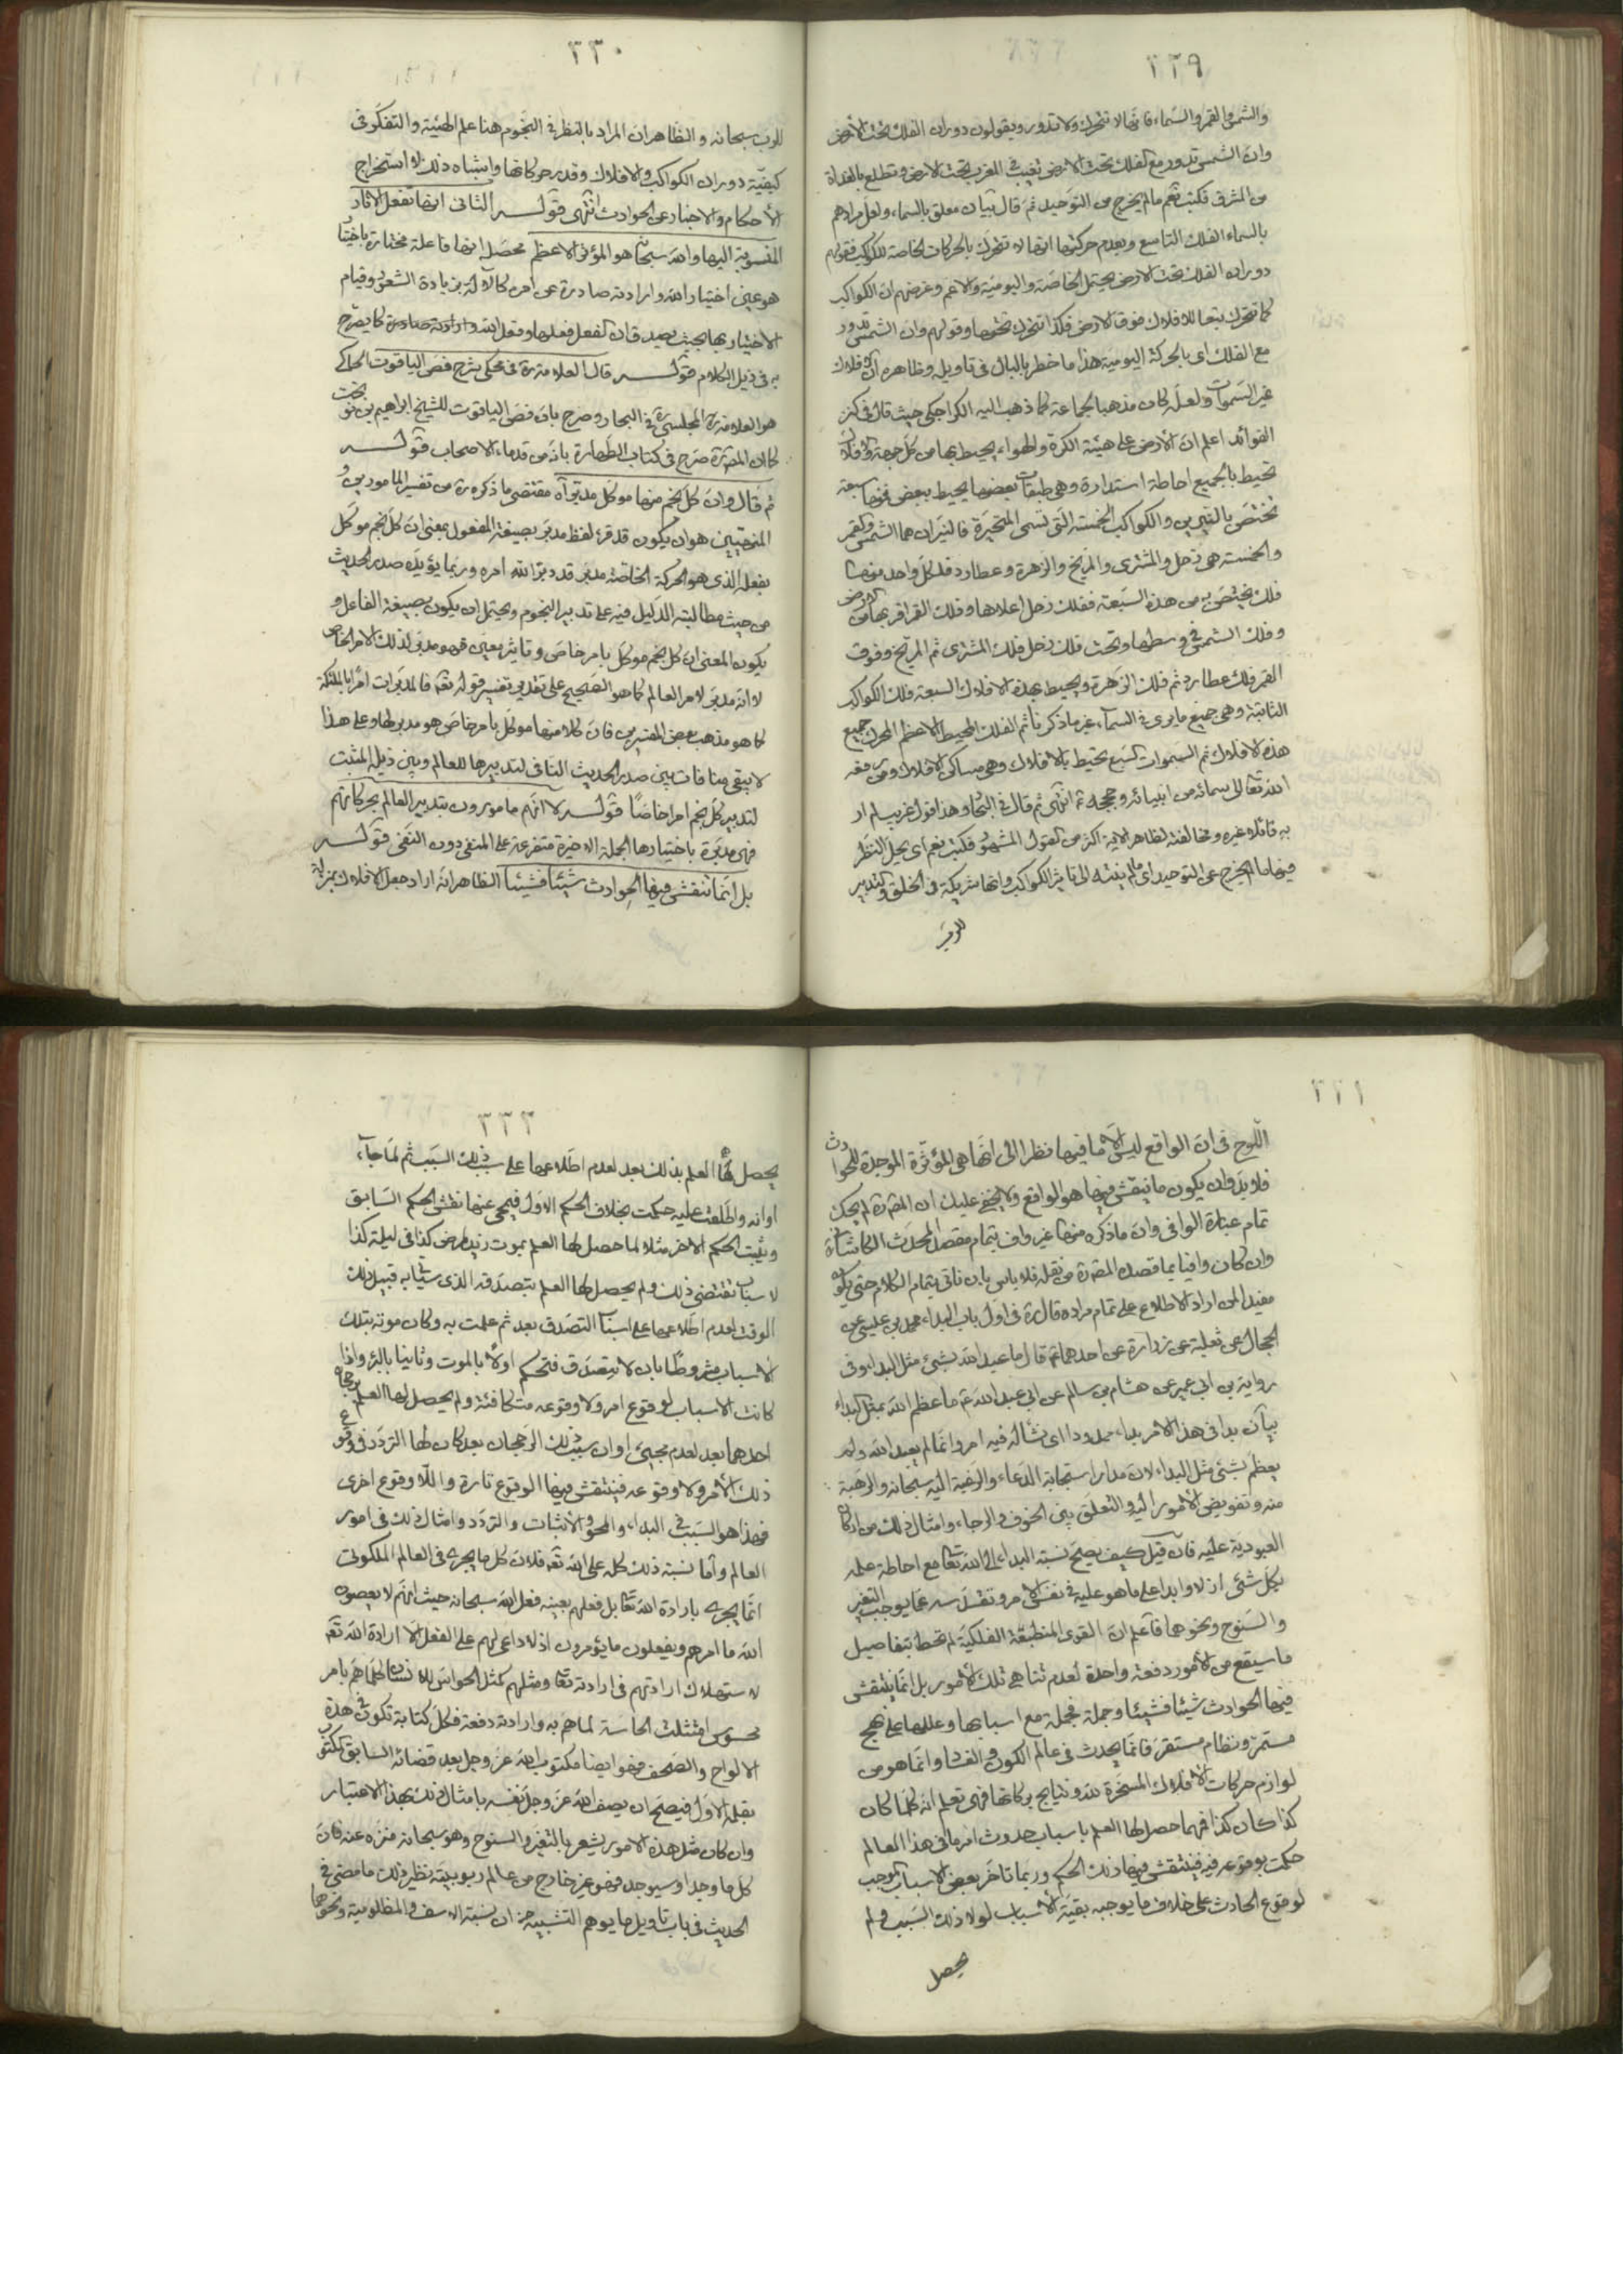 ٢٢٩
والشمس والقمر والسماء فانها لا تتحرك ولا تدور ويقولون دوران الفلك تحت الأرض
وان الشمس تدور مع الفلك تحت الارض تغيب في المغرب تحت الارض وتطلع بالغداة
من المشرق فكتب نعم مالم يخرج من التوحيد ثم قال بيان معلق بالسماء ولعل مرادهم
بالسماء الفلك التاسع وبعدم حركتها انها لا تتحرك بالحركات الخاصة للكواكب فقولهم
دوران الفلك تحت الارض يحتمل الخاصة واليومية والاعم وغرضهم ان الكواكب
كما تتحرك بتعا للافلاك فوق الارض فكذا تتحرك تحتها وقولهم وان الشمس تدور
مع الفلك اى بالحركة اليومية هذا ما خطر بالبال في تاويله وظاهره ان الافلاك
غير السموات ولعل كان مذهبا لجماعة كما ذهب اليه الكراجكي حيث قال في كنز
الفوائد اعلم ان الأرض على هيئة الكرة والهواء يحيط بها من كل جهة والافلاك
تحيط بالجميع احاطة استدارة وهى طبقات بعضها يحيط ببعض فمنها سبعة
تختص بالنيرين والكواكب الخمسة التى تسمى المتحيرة فالنيران هما الشمس والقمر
والخمسة هي زحل والمشترى والمريخ والزهرة وعطارد فلكل واحد منها
فلك يختص به من هذه السبعة ففلك زحل اعلاها وفلك القمر اقربها من الارض
وفلك الشمس في وسطها وتحت فلك زحل فلك المشترى ثم المريخ وفوق
القمر فلك عطارد ثم فلك الزهرة ويحيط بهذه الافلاك السبعة فلك الكواكب
الثابتة وهى جميع مايرى في السماء غير ما ذكرنا ثم الفلك المحيط الاعظم المحرك جميع
هذه الافلاك ثم السموات السبع تحيط بالافلاك وهى مساكن الاملاك ومن رفعه
الله تعالى سمائه من انبيائه وحججه ع انتهى ثم قال في البحار وهذا قول غريب لم ار
به قائلا غيره ومخالفته لظاهر الاية اكثر من القول المشهور فكتب نعم اى يحل النظر
فيها مالم يخرج عن التوحيد اى مالم ينته الى تاثير الكواكب وانها شريكة في الخلق والتدبير
للرب
٢٣٠
للرب سبحانه والظاهر ان المراد بالنظر في النجوم هنا علم الهيئة والتفكر في
كيفية دوران الكواكب والافلاك وقدر حركاتها واشباه ذلك لا استخراج
الأحكام والاخبار عن الحوادث انتهى قوله الثانى انها تفعل الاثار
المنسوبة اليها والله سبحانه هو المؤثر الاعظم محصله انها فاعلة مختارة باختيار
هو عين اختيار الله وارادته صادرة عن امره كالآلة بزيادة الشعور وقيام
الاختيار بها بحيث يصدق ان الفعل فعلها وفعل الله وارادته صادرة كما يصرح
به في ذيل الكلام قوله قال العلامة ره في محكى شرح فص الياقوت الحاكى
هو العلامة المجلسى ره في البحار وصرح بان فص الياقوت للشيخ ابراهيم بن نوبخت
كما ان المصره صرح في كتاب الطهارة بانه من قدماء الاصحاب قوله
ثم قال وان كل نجم منها موكل مدبر آه مقتضى ما ذكره ره من تفسير المامورين
المنهيين هو ان يكون قد قرء لفظ مدبر بصيغة المفعول بمعنى ان كل نجم موكل
بفعله الذى هو الحركة الخاصة مدبر قد دبر الله امره وربما يؤيده صدر الحديث
من حيث مطالبة الدليل فيه على تدبير النجوم ويحتمل ان يكون بصيغة الفاعل و
يكون المعنى ان كل نجم موكل بامر خاص وتاثير معين فهو مدبر لذلك الامر الخاص
لا انه مدبر لامر العالم كما هو الصحيح على تقدير تفسير قوله تعالى فالمدبرات امرا بالملئكة
كما هو مذهب بعض المفسرين فان كلا منها موكل بامر خاص هو مدبر لها وعلى هذا
لا يبقى منافات بين صدر الحديث النافى لتدبيرها للعالم وبين ذيله المثبت
لتدبير كل نجم امرا خاصا قوله لا انهم مامورون بتدبير العالم بحركاتهم
فهى مدبرة باختيارها الجملة الاخيرة متفرعة على المنفى دون النفى قوله
بل انما تنقش فيها الحوادث شيئا فشيئا الظاهر انه اراد جعل الافلاك بمنزلة
٢٣١
اللوح في ان الواقع ليس الا ما فيها نظرا الى انها هى المؤثرة الموجدة للحوادث
فلا بد وان يكون ما ينقش فيها هو الواقع ولا يخفى عليك ان المصره لم يحك
تمام عبارة الوافى وان ما ذكره منها غير واف بتمام مقصد المحدث الكاشانى
وان كان وافيا بما قصده المصره من نقله فلا باس بان ناتى بتمام الكلام حتى يكون
مفيدا لمن اراد الاطلاع على تمام مراده قال ره في اول باب البداء محمد بن عيسى عن
الحجال عن ثعلبة عن زرارة عن احدهما ع قال ما عبد الله بشئ مثل البداء وفى
رواية بن ابى عمير عن هشام بن سالم عن ابى عبد الله ع ما عظم الله بمثل البداء
بيان بدا في هذا الامر بداء ممدودا اى نشا له فيه امر وانما لم يعبد الله ولم
يعظم بشئ مثل البداء لان مدار استجابة الدعاء والرغبة اليه سبحانه والرهبة
منه وتفويض الامور اليه والتعلق بين الخوف والرجاء وامثال ذلك من اركان
العبودية عليه فان قيل كيف يصح نسبة البداء الى الله تعالى مع احاطة علمه
بكل شئ ازلا وابدا على ما هو عليه في نفس الامر وتقدسه عما يوجب التغير
والسنوح ونحوها فاعلم ان القوى المنطبقة الفلكية لم تحط بتفاصيل
ما سيقع من الأمور دفعة واحدة لعدم تناهى تلك الأمور بل انما ينتقش
فيها الحوادث شيئا فشيئا وجملة فجملة مع اسبابها وعللها على نهج
مستمر ونظام مستقر فانما يحدث في عالم الكون والفساد انما هو من
لوازم حركات الافلاك المسخرة لله ونتايج بركاتها فهى تعلم انه كلما كان
كذا كان كذا فمهما حصل لها العلم باسباب حدوث امر ما في هذا العالم
حكمت بوقوعه فيه فينتقش فيها ذلك الحكم وربما تاخر بعض الاسباب الموجب
لوقوع الحادث على خلاف ما يوجبه بقية الاسباب لولا ذلك السبب ولم
يحصل
٢٣٢
يحصل لها العلم بذلك بعد لعدم اطلاعها على سبب ذلك السبب ثم لما جاء
اوانه واطلعت عليه حكمت بخلاف الحكم الاول فيمحى عنها نقش الحكم السابق
ويثبت الحكم الاخر مثلا لما حصل لها العلم بموت زيد بمرض كذا في ليلة كذا
لاسباب تقتضى ذلك ولم يحصل لها العلم بتصدقه الذى سيأتي به قبيل ذلك
الوقت لعدم اطلاعها على اسباب التصدق بعد ثم علمت به وكان موته بتلك
الاسباب مشروطا بان لا يتصدق فتحكم اولا بالموت وثانيا بالبرء واذا
كانت الاسباب لوقوع امر ولا وقوعه متكافئة ولم يحصل لها العلم برجحان
احدهما بعد لعدم مجئ اوان سبب ذلك الرجحان بعد كان لها التردد في وقوع
ذلك الأمر ولا وقوعه فينتقش فيها الوقوع تارة واللا وقوع اخرى
فهذا هو السبب في البداء والمحو والاثبات والتردد وامثال ذلك في امور
العالم وأما نسبة ذلك كله على الله تعالى فلان كل ما يجرى في العالم الملكوتى
انما يجرى بارادة الله تعالى بل فعلهم بعينه فعل الله سبحانه حيث انهم لا يعصون
الله ما امرهم ويفعلون ما يؤمرون اذ لا داعى لهم على الفعل الا ارادة الله تعالى
لاستهلاك ارادتهم في ارادته تعالى ومثلهم كمثل الحواس للانسان كلما هم بامر
محسوس امتثلت الحاسة لما هم به وارادته دفعة فكل كتابة تكون في هذه
الالواح والصحف فهو ايضا مكتوب الله عز وجل بعد قضائه السابق المكتوب
بقلمه الاول فيصح ان يصف الله عز وجل نفسه بامثال ذلك بهذا الاعتبار
وان كان مثل هذه الامور يشعر بالتغير والسنوح وهو سبحانه منزه عنه فان
كل ما وجد او سيوجد فهو غير خارج من عالم ربوبيته نظير ذلك ما مضى في
الحديث في باب تاويل ما يوهم التشبيه من ان نسبة الاسف والمظلومية ونحوها